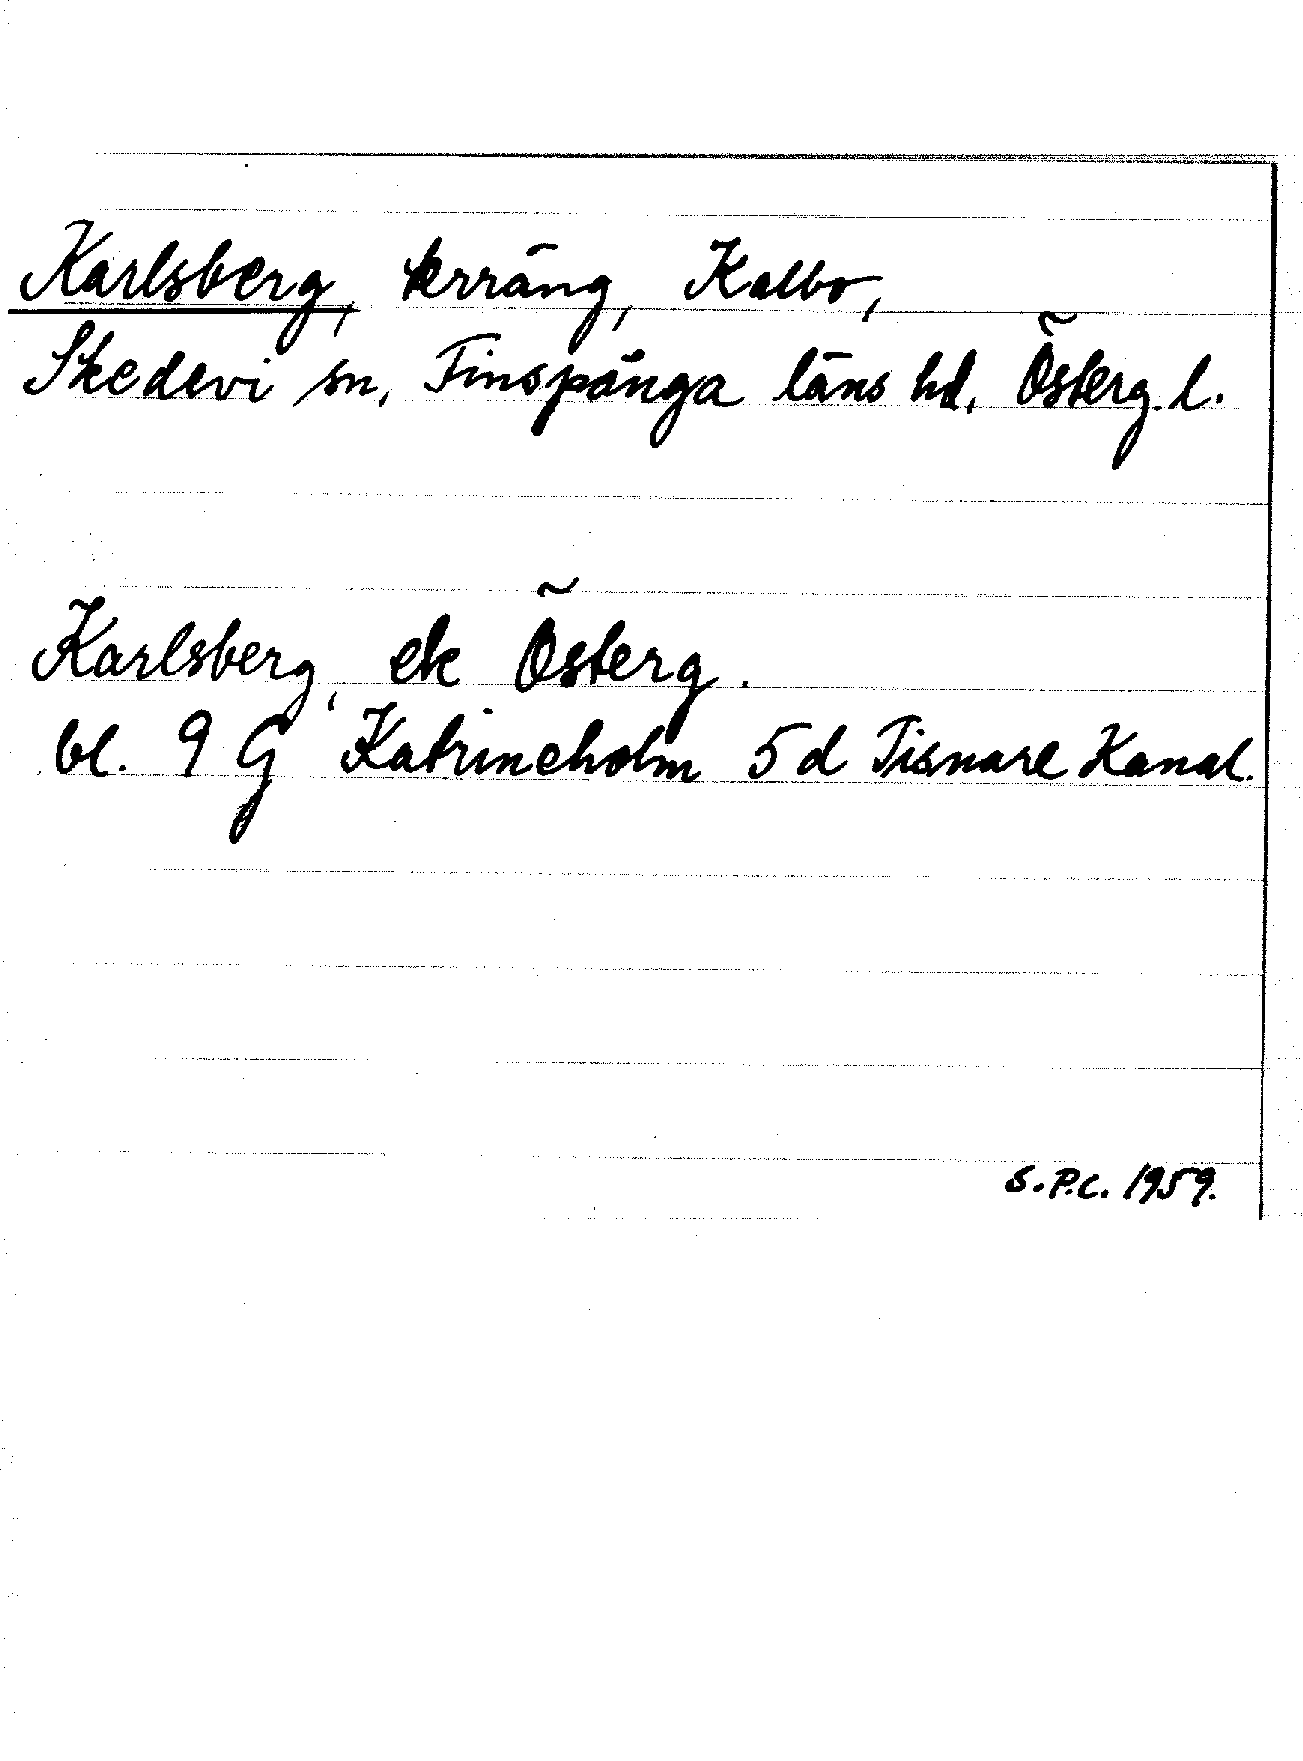 Karlsberg, terräng, Kalbo,
Skedevi sn, Finspånga läns hd, Österg. l.
Karlsberg, ek Österg.
bl. 9 G Katrineholm 5 d Tisnare Kanal.
S.P.C. 1959.